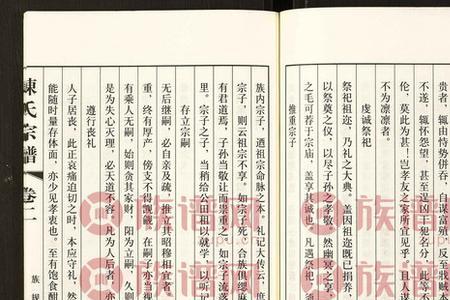 贵者，辄由恃势併吞，自谋富殖，反至戕贼本
不遂，辄怀怨望，甚至逞凶干犯名分，此等不
伦，莫此为甚！岂孝友之家所宜见乎。且人谋
不为凛凛者。
虔诚祭祀
祭祀祖迹，乃礼之大典。盖因祖迹既已捐养，
以祭奠之仪，以尽子孙之孝敬。然幽冥之享，
之毛可荐于宗庙，盖享其诚也。凡遇祭祀，须
推重宗子
族内宗子，迺祖宗命脉之本。礼记大传云，庶
宗子，则云祖宗不享。如宗子死，合族俱缪麻
有君道焉，子孙当敬让而崇重之。如宗子流落
里。宗子之子，当稍给公田租以就学，以听记
存立宗嗣
无后继嗣，必自亲及疏，推立其昭穆相宜者。
重，终有厚产，傍支不得觊觎。在嗣子亦当视
有乘人无嗣，始则贪其家财，阳为立嗣，久则
是为失心灭理，必天道不容。凡为人后者，
遵行丧礼
人子居丧，此正哀痛迫切之时，本应守礼，然
能随时量存体面，亦少见孝衷也。至有饱食酣
陳氏宗譜
卷二
族规
族谱